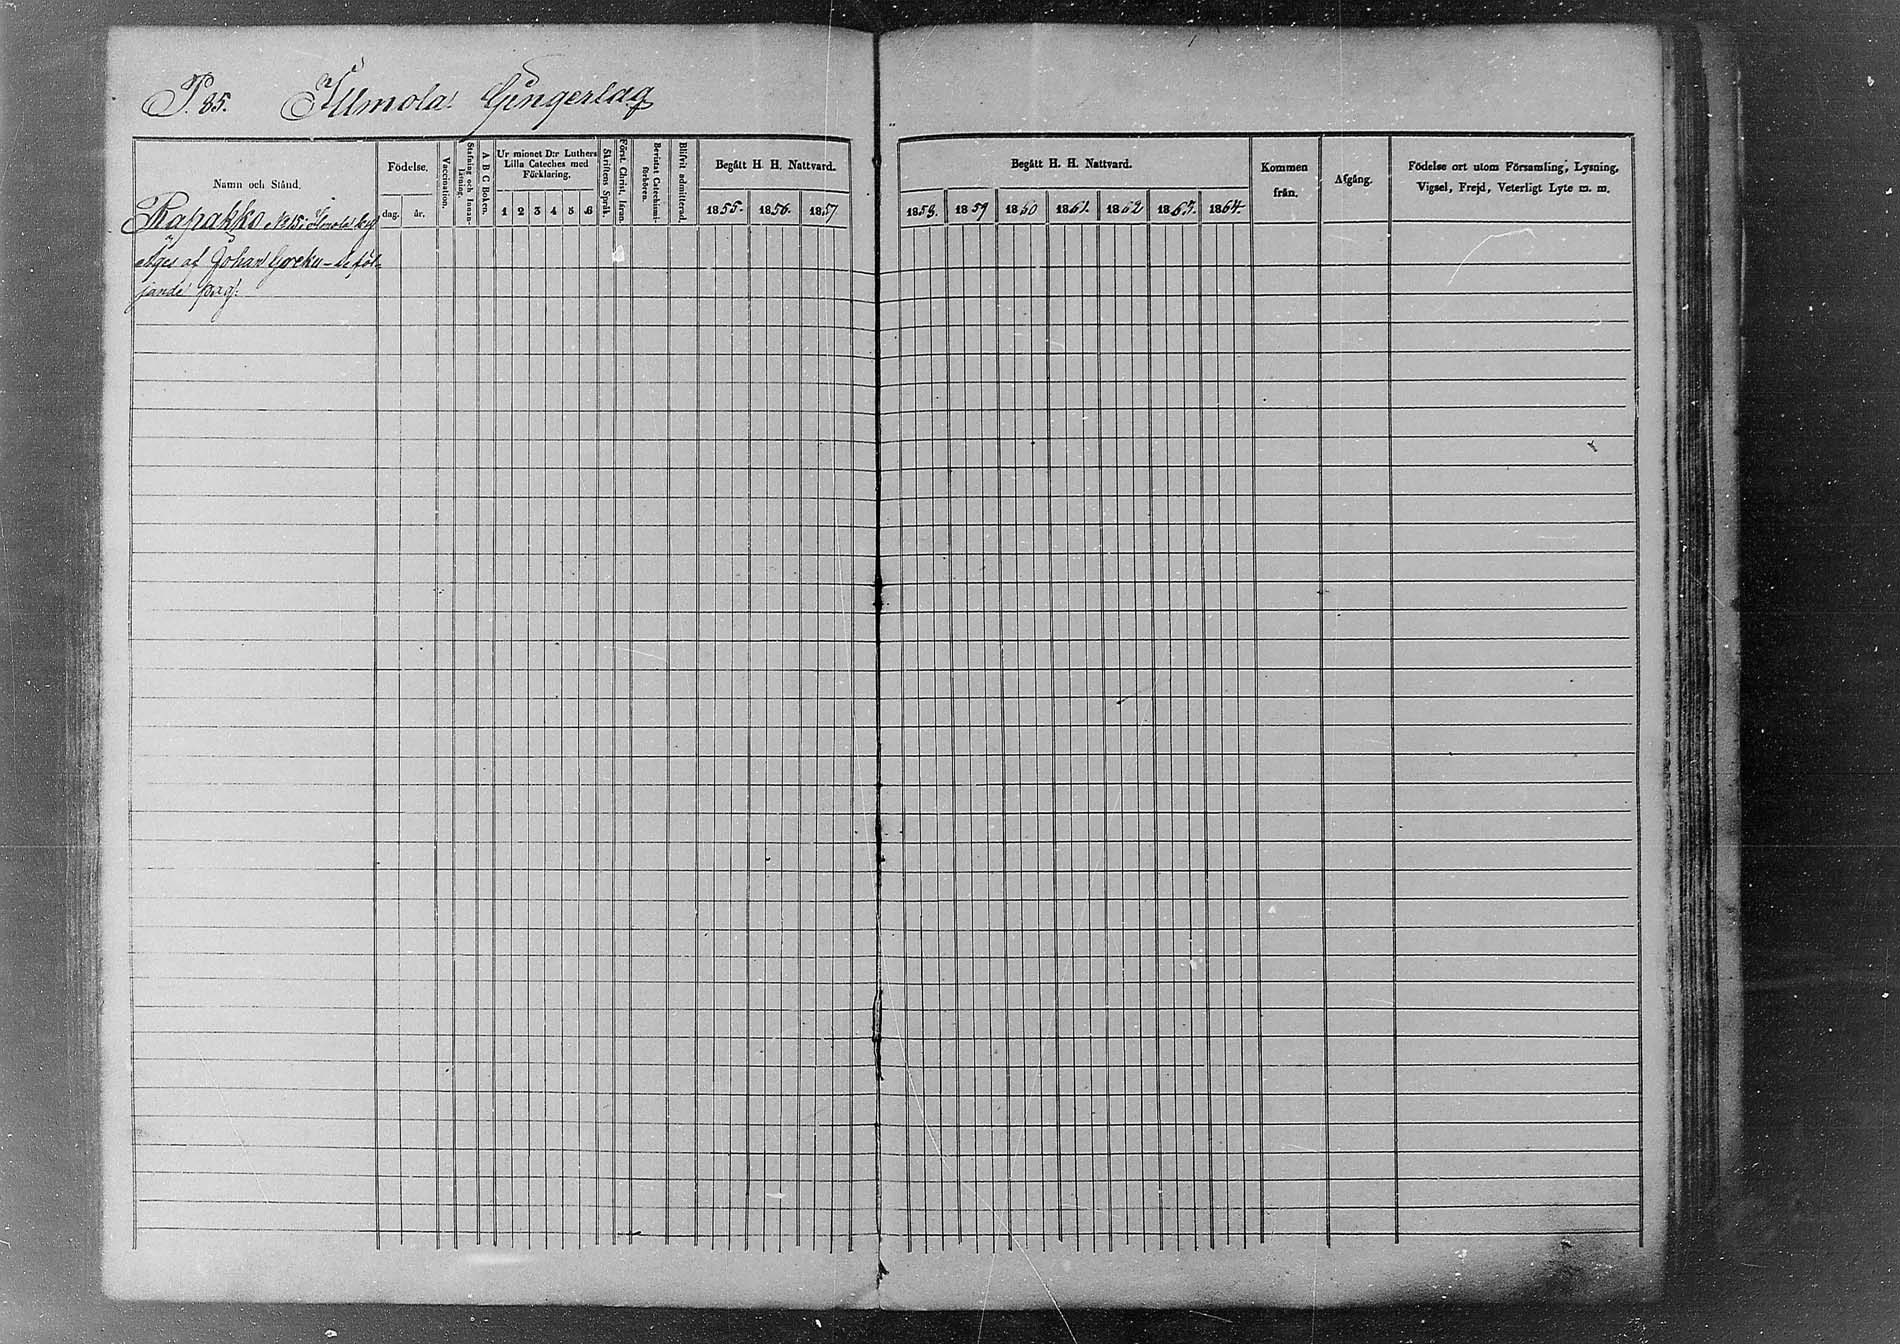 P. 85. Illmola Gingerlag
Namn och Stånd.
Födelse.
dag. år.
Vaccination.
Stafning och Innan-läsning.
A B C Boken.
Ur minnet D:r Luthers Lilla Cateches med Förklaring.
1 2 3 4 5 6
Skriftens Språk.
Först. Christ. lärun.
Bevistat Catechismi-förhören.
Blifvit admitterad.
Begått H. H. Nattvard.
1855. 1856. 1857
Begått H. H. Nattvard.
1858. 1859 1860 1861. 1862 1863. 1864.
Kommen från.
Afgång.
Födelse ort utom Församling, Lysning,
Vigsel, Frejd, Veterligt Lyte m. m.
Rapakko, N 15 i Ilmola by
äges af Johan Greku – se föl-
jande pag: